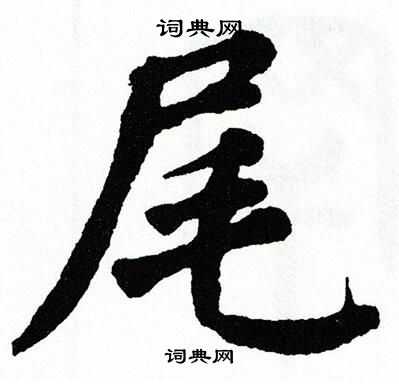 词典网
尾
词典网